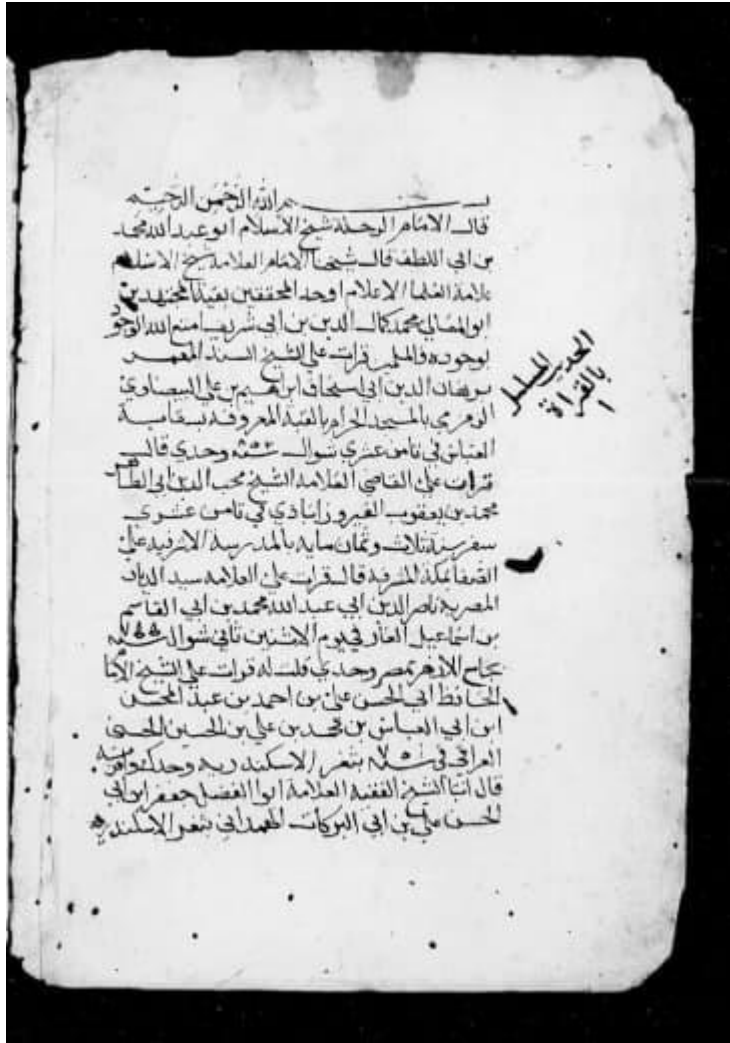 بسم الله الرحمن الرحيم
قال الامام الرحلة شيخ الاسلام ابو عبد الله محمد
بن ابي اللطف قال شيخنا الامام العلامة شيخ الاسلام
علامة العلما الاعلام اوحد المحققين بقية المجتهدين
ابو المعالي محمد كمال الدين بن ابي شريف امتع الله الوجود
بوجوده والمسلمين قرات علي الشيخ المسند المعمر
برهان الدين ابي اسحاق ابراهيم بن علي البيضاوي
الزمزمي بالمسجد الحرام بالقبة المعروفة بسقاية
العباس في ثامن عشري شوال سنة وحدي قال
قرات علي القاضي العلامة الشيخ محب الدين ابي الطاهر
محمد بن يعقوب الفيروزابادي في ثامن عشري
سفر سنة ثلاث وثمان ماية بالمدرسة الاشرفية علي
الصفا بمكة المشرفة قال قرات علي العلامة سيد الديار
المصرية ناصر الدين ابي عبد الله محمد بن ابي القاسم
بن اسماعيل الفارقي يوم الاثنين ثاني شوال سنة ٧٥٥
بجامع الازهر بمصر وحدي قلت له قرات علي الشيخ الاما
الحافظ ابي الحسن علي بن احمد بن عبد المحسن
ابن ابي العباس بن محمد بن علي بن الحسين الحسني
العراقي في سنة بثغر الاسكندرية وحدك
قال انبا الشيخ الفقيه العلامة ابو الفضل جعفر ابن ابي
الحسن علي بن ابي البركات الهمداني بثغر الاسكندرية
الحديث المسلسل
بالقراة
١